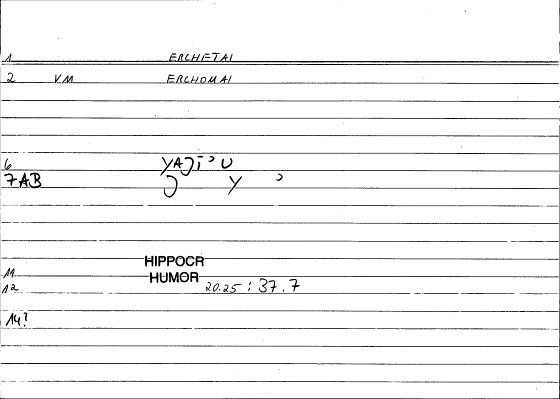 1 ERCHETAI
2 VM ERCHOMAI
6
7AB
HIPPOCR
11 HUMOR
12 20.25 : 37.7
14?